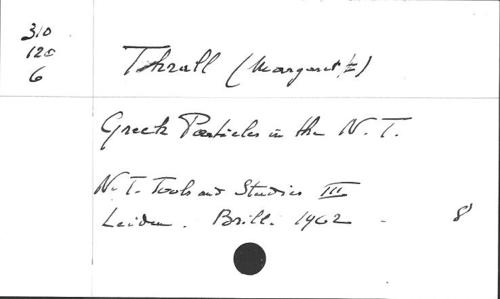 310
120
6
Thrall (Margaret E)
Greek Particles in the N. T.
N. T. Tools and Studies III
Leiden. Brill. 1962 - 8°